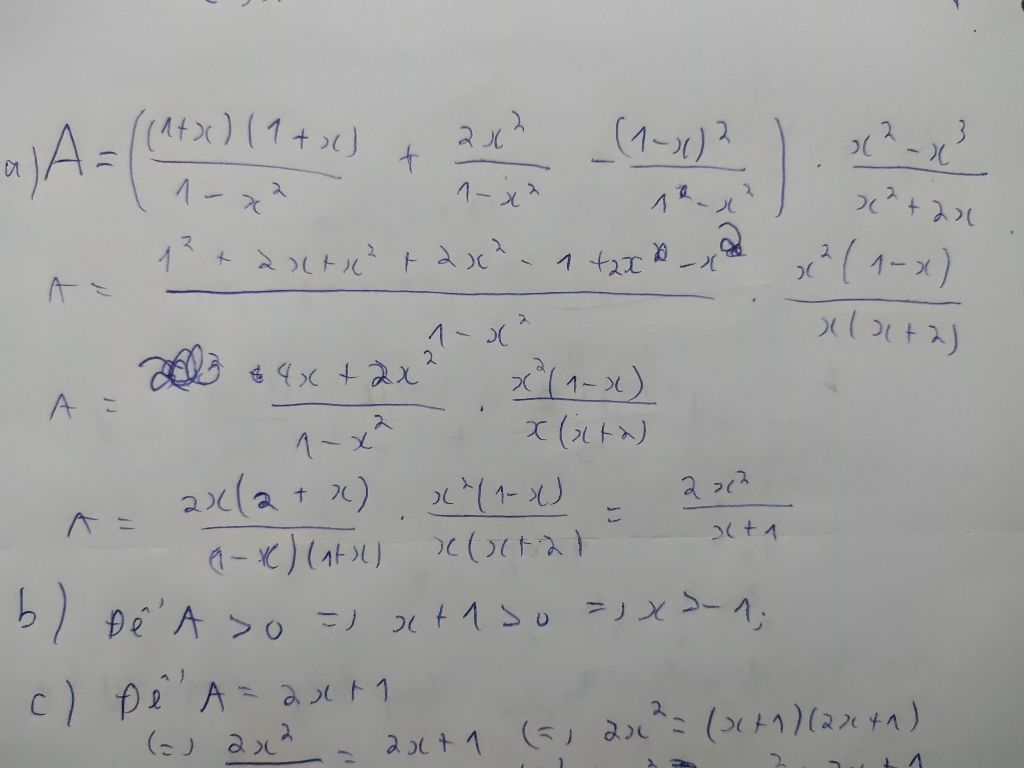 a) A = ( (1+x)(1+x) / 1-x² + 2x² / 1-x² - (1-x)² / 1-x² ) . x²-x³ / x²+2x
A = 1² + 2x+x² + 2x² - 1 +2x -x² / 1-x² . x²(1-x) / x(x+2)
A = 4x + 2x² / 1-x² . x²(1-x) / x(x+2)
A = 2x(2+x) / (1-x)(1+x) . x²(1-x) / x(x+2) = 2x² / x+1
b) Để A > 0 => x+1 > 0 => x > -1;
c) Để A = 2x+1
(=) 2x² / = 2x+1 (=) 2x² = (x+1)(2x+1)